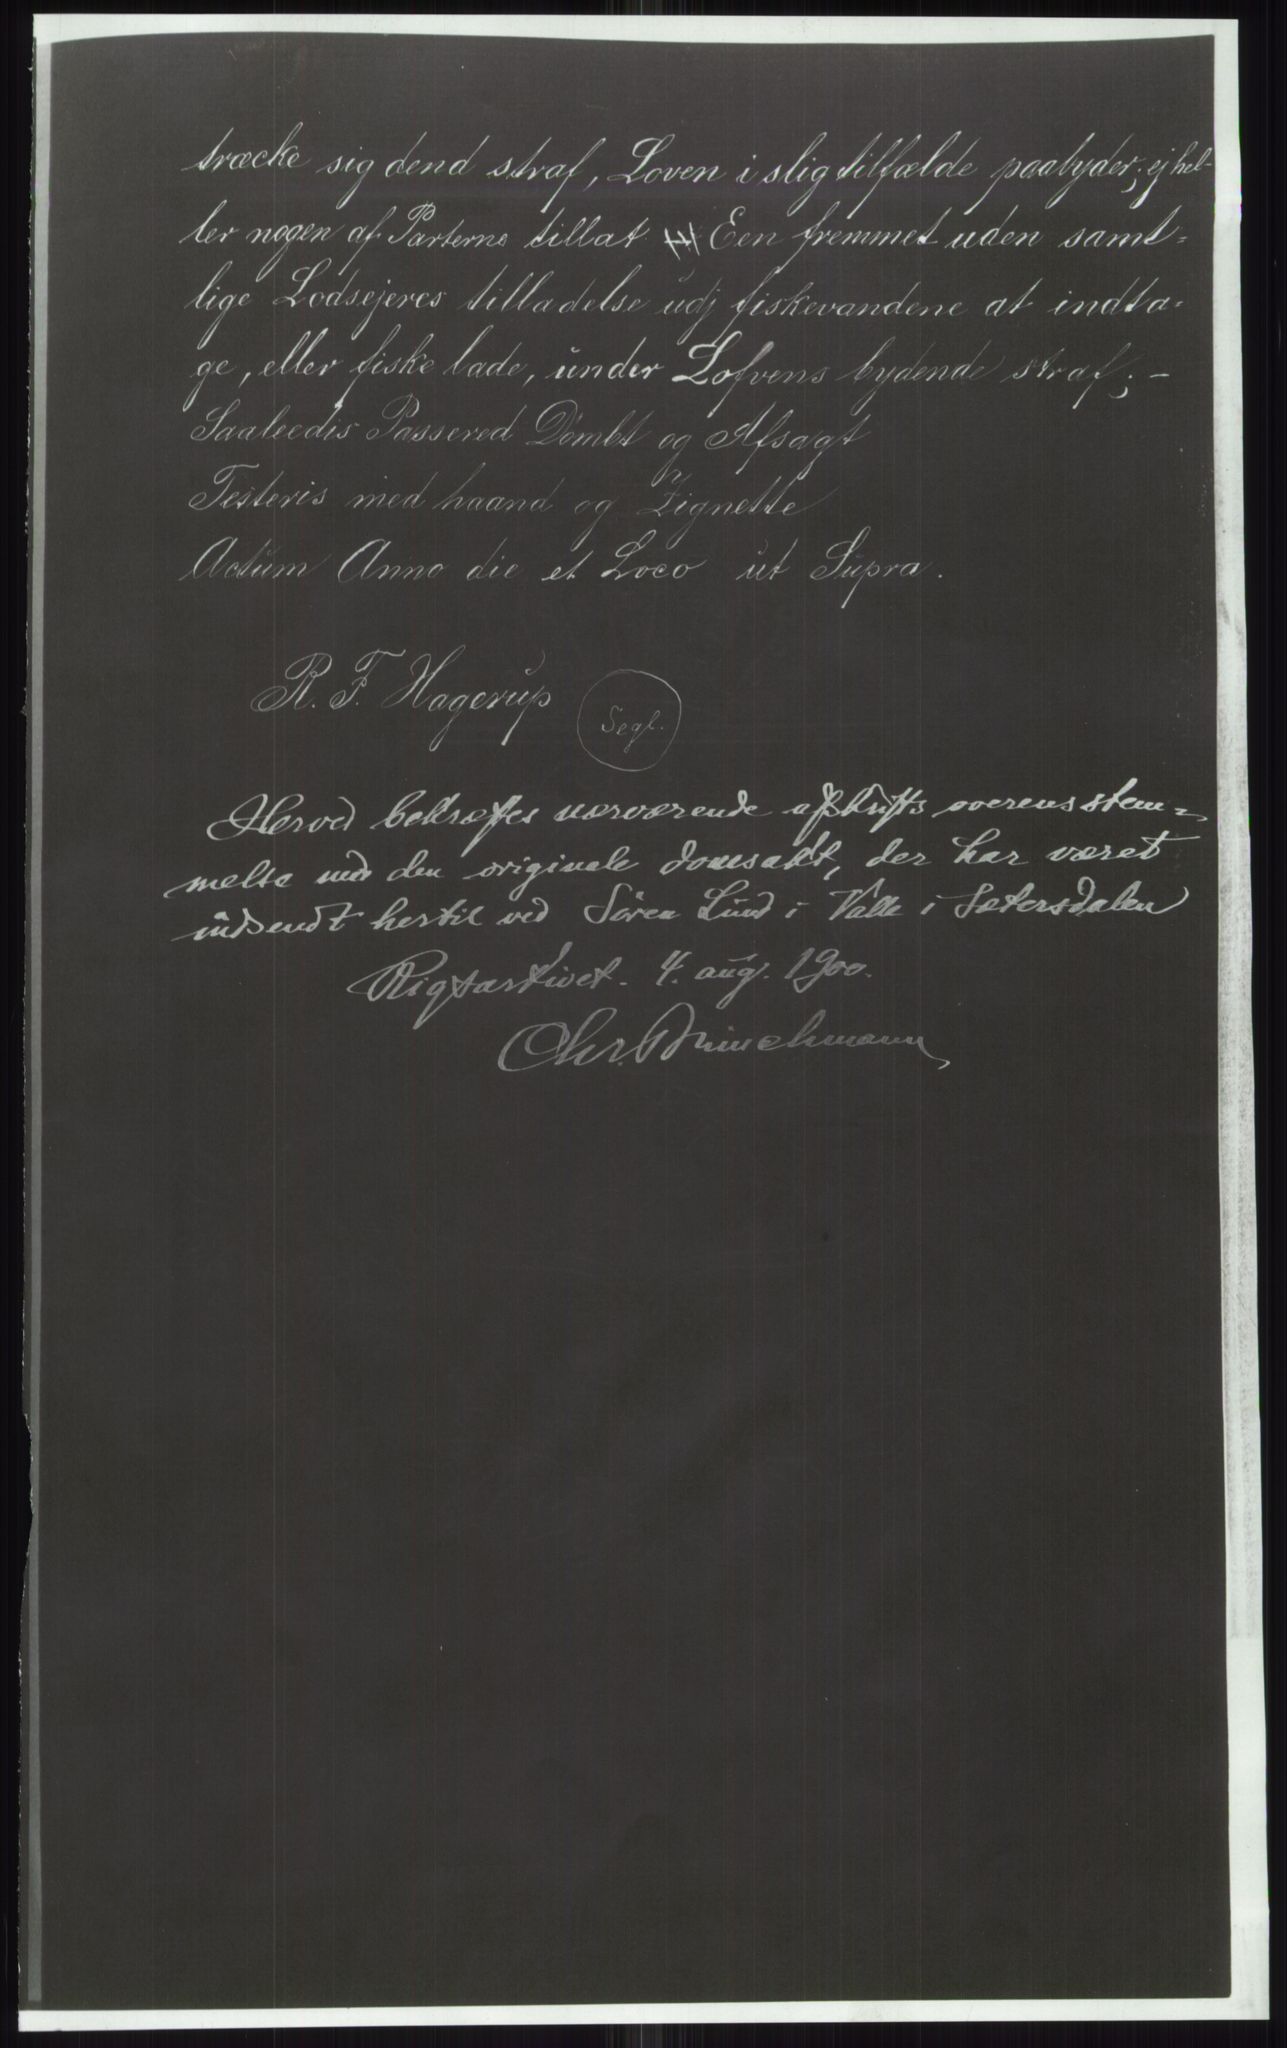 træcke sig dend straf, Loven i slig tilfælde paabyder; ej hel-
ler nogen af Parterne tillat Een fremmet uden samt-
lige Lodsejeres tilladelse udj fiskevandene at indta-
ge, eller fiske lade, under Lofvens bydende straf; -
Saaleedis Passered Dømbt og Afsagt
Testeris med haand og Zignette
Actum Anno die et Loco ut Supra.
R. F. Hagerup
Segl.
Herved bekræftes nærværende afskrifts overensstem-
melse med den originale domsakt, der har været
indsendt hertil ved Sören Lund i Valle i Sætersdalen
Rigsarkivet. 4. aug. 1900.
Chr. Brinchmann